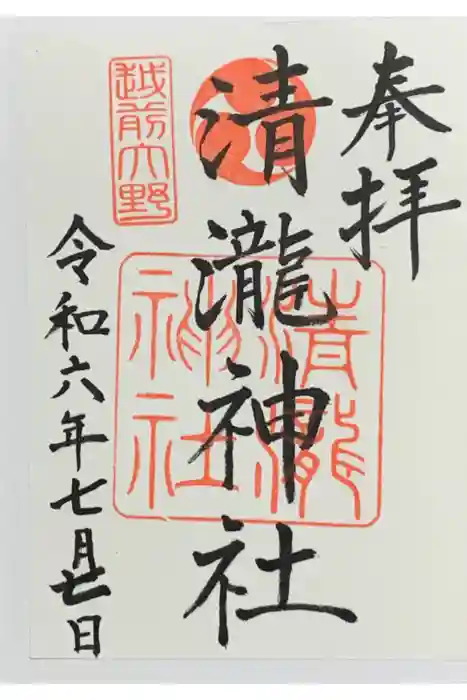 奉拝
清瀧神社
清瀧神社
越前大野
令和六年七月廿日